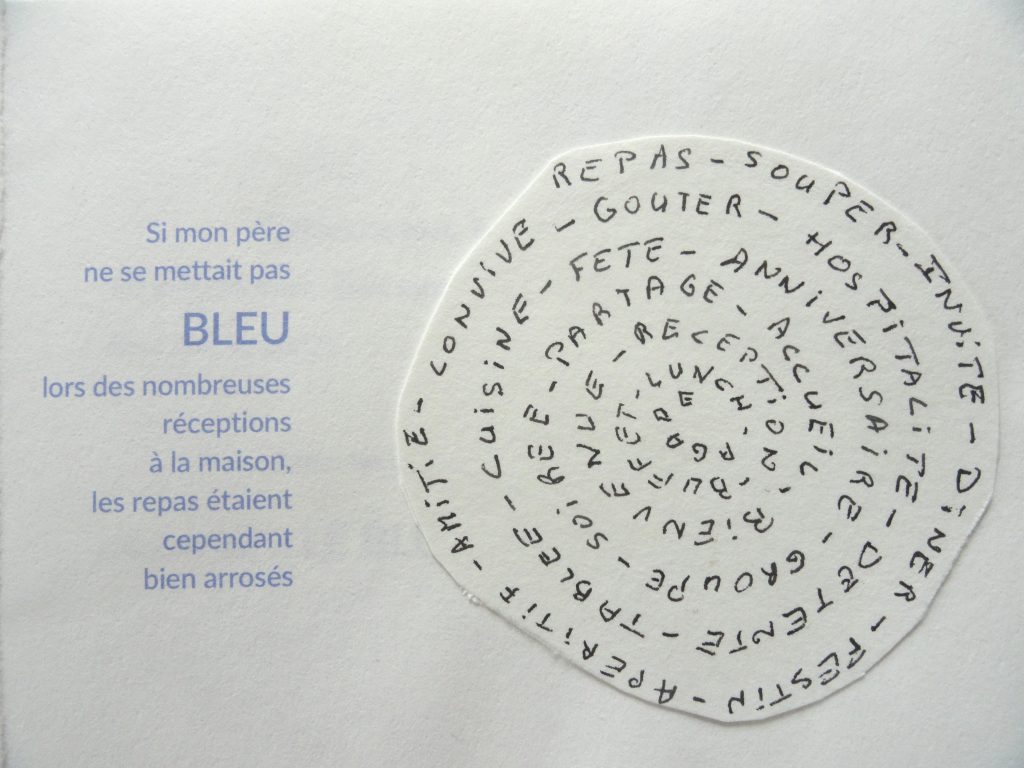 Si mon père
ne se mettait pas
BLEU
lors des nombreuses
réceptions
à la maison,
les repas étaient
cependant
bien arrosés
REPAS - SOUPER - INVITE - DINER - FESTIN - APERITIF - AMITIE - CONVIVE - GOUTER - HOSPITALITE - DETENTE - TABLEE - CUISINE - FETE - ANNIVERSAIRE - GROUPE - SOIREE - PARTAGE - ACCUEIL - BIENVENUE - RECEPTION - BUFFET - LUNCH -